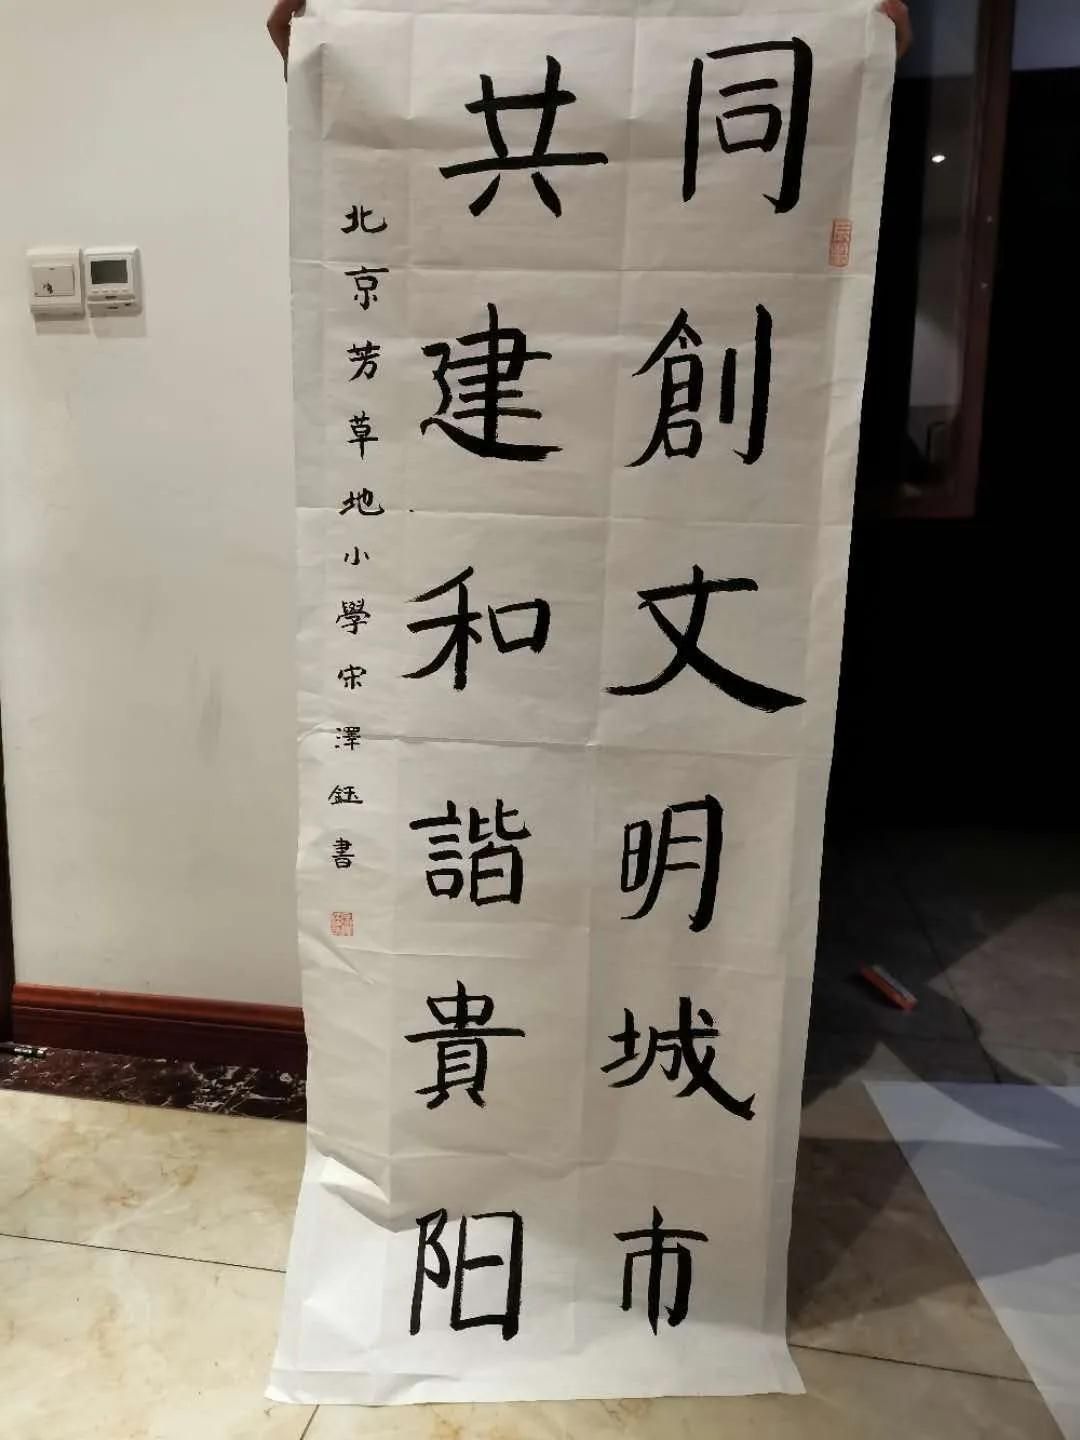 同創文明城市
共建和諧貴阳
北京芳草地小學宋澤鈺書